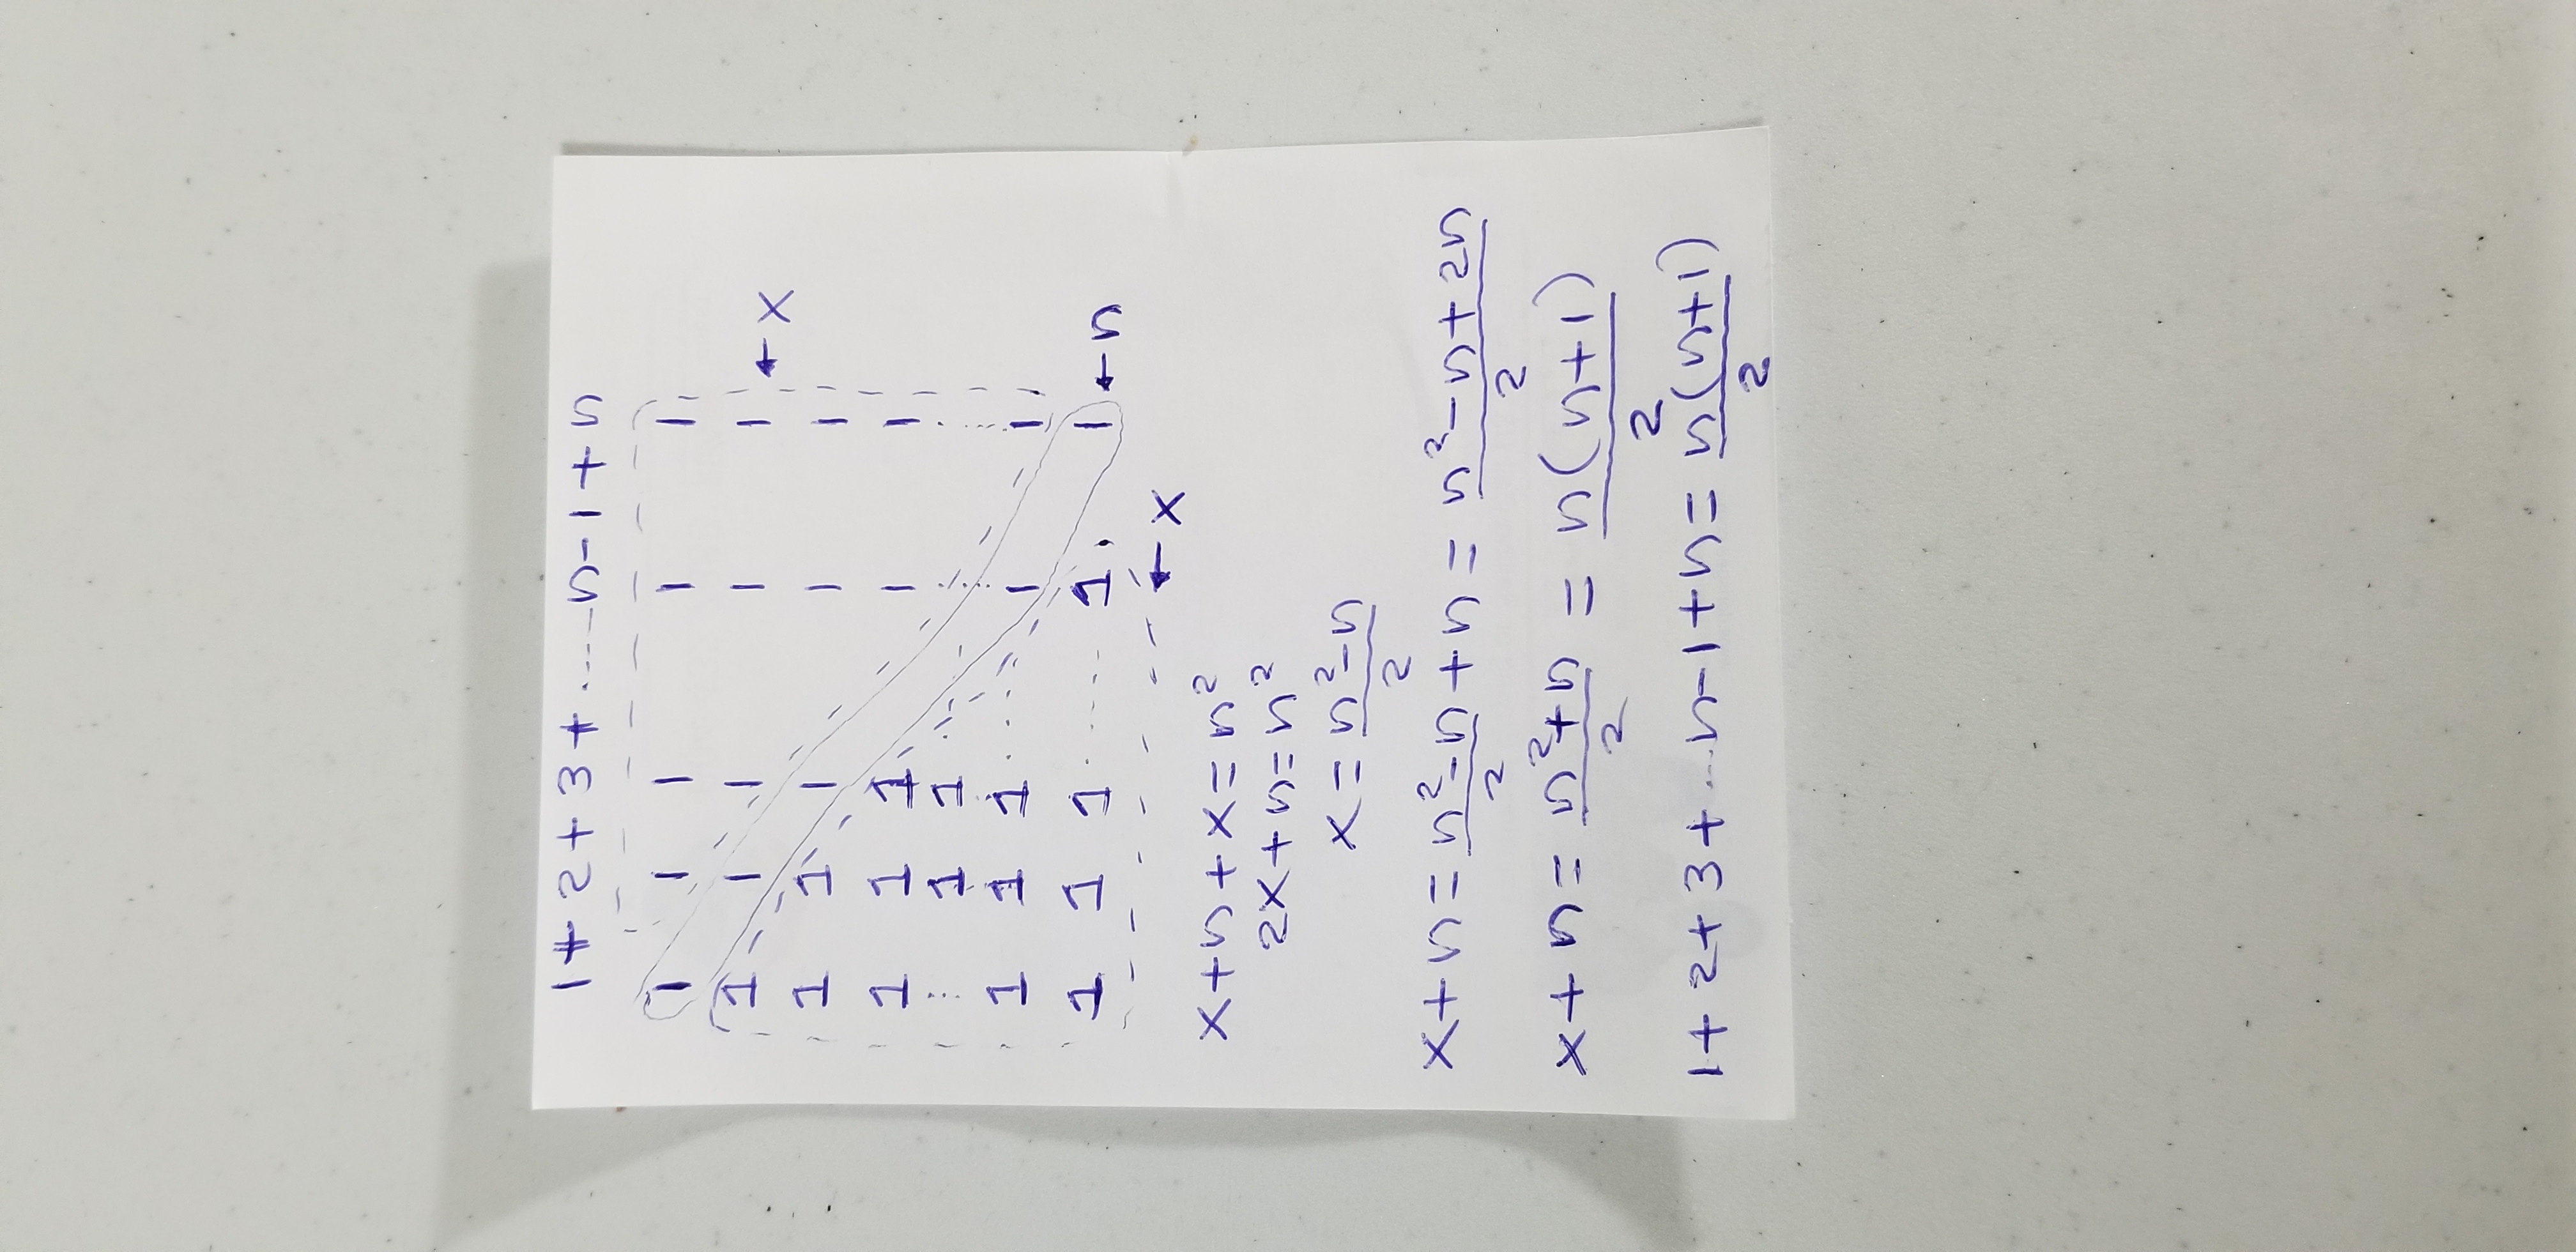 1 + 2 + 3 + ..... n-1 + n
1 1 1 1 1
1 1 1 1 1 ← x
1 1 1 1 1
1 1 1 1 1
⋮ 1 1 ... ⋮ ⋮
1 1 1 ..... 1 1
1 1 1 ...... 1 . 1 ← n
← x
x + n + x = n²
2x + n = n²
x = (n² - n)/2
x + n = (n² - n)/2 + n = (n² - n + 2n)/2
x + n = (n² + n)/2 = n(n+1)/2
1 + 2 + 3 + ... n-1 + n = n(n+1)/2